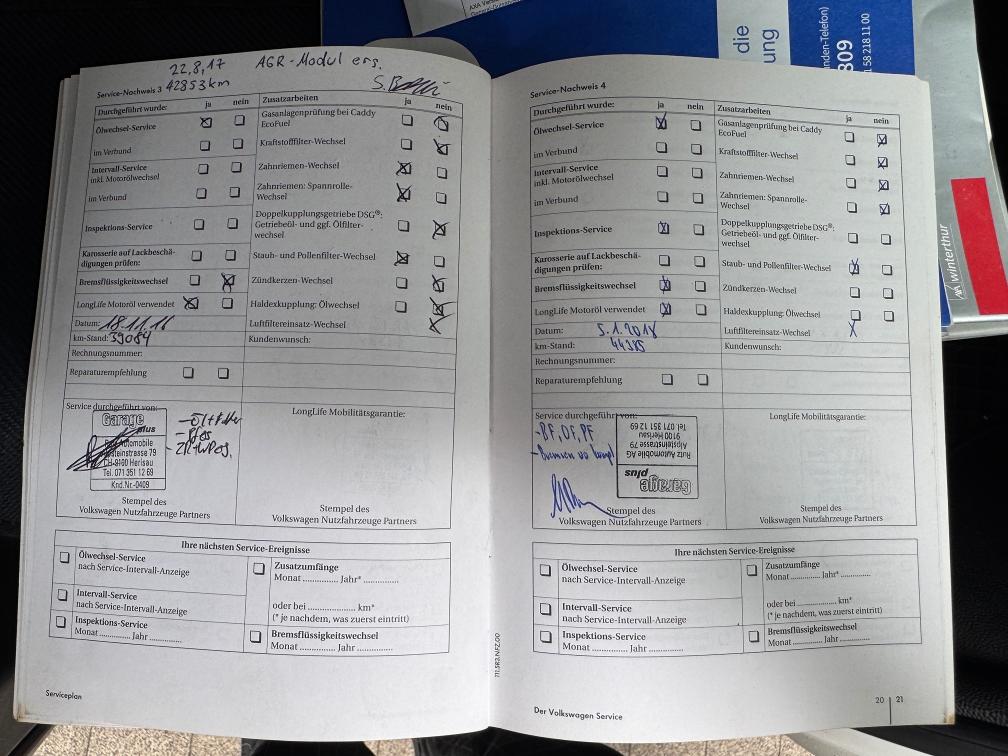 AXA
die
ung
nden-Telefon)
809
1 58 218 11 00
AXA winterthur
22.8.17 AGR-Modul ers.
Service-Nachweis 3 42853km
Durchgeführt wurde: ja nein Zusatzarbeiten ja nein
Ölwechsel-Service Gasanlagenprüfung bei Caddy
EcoFuel
im Verbund Kraftstofffilter-Wechsel
Intervall-Service Zahnriemen-Wechsel
inkl. Motorölwechsel
im Verbund Zahnriemen: Spannrolle-
Wechsel
Inspektions-Service Doppelkupplungsgetriebe DSG®:
Getriebeöl- und ggf. Ölfilter-
wechsel
Karosserie auf Lackbeschä-
digungen prüfen: Staub- und Pollenfilter-Wechsel
Bremsflüssigkeitswechsel Zündkerzen-Wechsel
LongLife Motoröl verwendet Haldexkupplung: Ölwechsel
Datum: 18.11.16 Luftfiltereinsatz-Wechsel
km-Stand: 39084 Kundenwunsch:
Rechnungsnummer:
Reparaturempfehlung
Service durchgeführt von: LongLife Mobilitätsgarantie:
Garage
plus
Automobile
steinstrasse 79
CH-9100 Herisau
Tel. 071 351 12 69
Knd.Nr.-0409
Stempel des Stempel des
Volkswagen Nutzfahrzeuge Partners Volkswagen Nutzfahrzeuge Partners
Ihre nächsten Service-Ereignisse
Ölwechsel-Service Zusatzumfänge
nach Service-Intervall-Anzeige Monat ............ Jahr* ............
Intervall-Service oder bei ................ km*
nach Service-Intervall-Anzeige (* je nachdem, was zuerst eintritt)
Inspektions-Service Bremsflüssigkeitswechsel
Monat ........... Jahr ........... Monat ............ Jahr ............
Serviceplan
111.5R3.NFZ.00
Service-Nachweis 4
Durchgeführt wurde: ja nein Zusatzarbeiten ja nein
Ölwechsel-Service Gasanlagenprüfung bei Caddy
EcoFuel
im Verbund Kraftstofffilter-Wechsel
Intervall-Service Zahnriemen-Wechsel
inkl. Motorölwechsel
im Verbund Zahnriemen: Spannrolle-
Wechsel
Inspektions-Service Doppelkupplungsgetriebe DSG®:
Getriebeöl- und ggf. Ölfilter-
wechsel
Karosserie auf Lackbeschä-
digungen prüfen: Staub- und Pollenfilter-Wechsel
Bremsflüssigkeitswechsel Zündkerzen-Wechsel
LongLife Motoröl verwendet Haldexkupplung: Ölwechsel
Datum: 5.1.2018 Luftfiltereinsatz-Wechsel
km-Stand: 44385 Kundenwunsch:
Rechnungsnummer:
Reparaturempfehlung
Service durchgeführt von: LongLife Mobilitätsgarantie:
-BF, OF, PF
Garage
plus
Rutz Automobile AG
Alpsteinstrasse 79
9100 Herisau
Tel. 071 351 12 69
Stempel des Stempel des
Volkswagen Nutzfahrzeuge Partners Volkswagen Nutzfahrzeuge Partners
Ihre nächsten Service-Ereignisse
Ölwechsel-Service Zusatzumfänge
nach Service-Intervall-Anzeige Monat ............ Jahr* ............
Intervall-Service oder bei ................ km*
nach Service-Intervall-Anzeige (* je nachdem, was zuerst eintritt)
Inspektions-Service Bremsflüssigkeitswechsel
Monat ............ Jahr ............ Monat ............ Jahr ............
Der Volkswagen Service 20 21